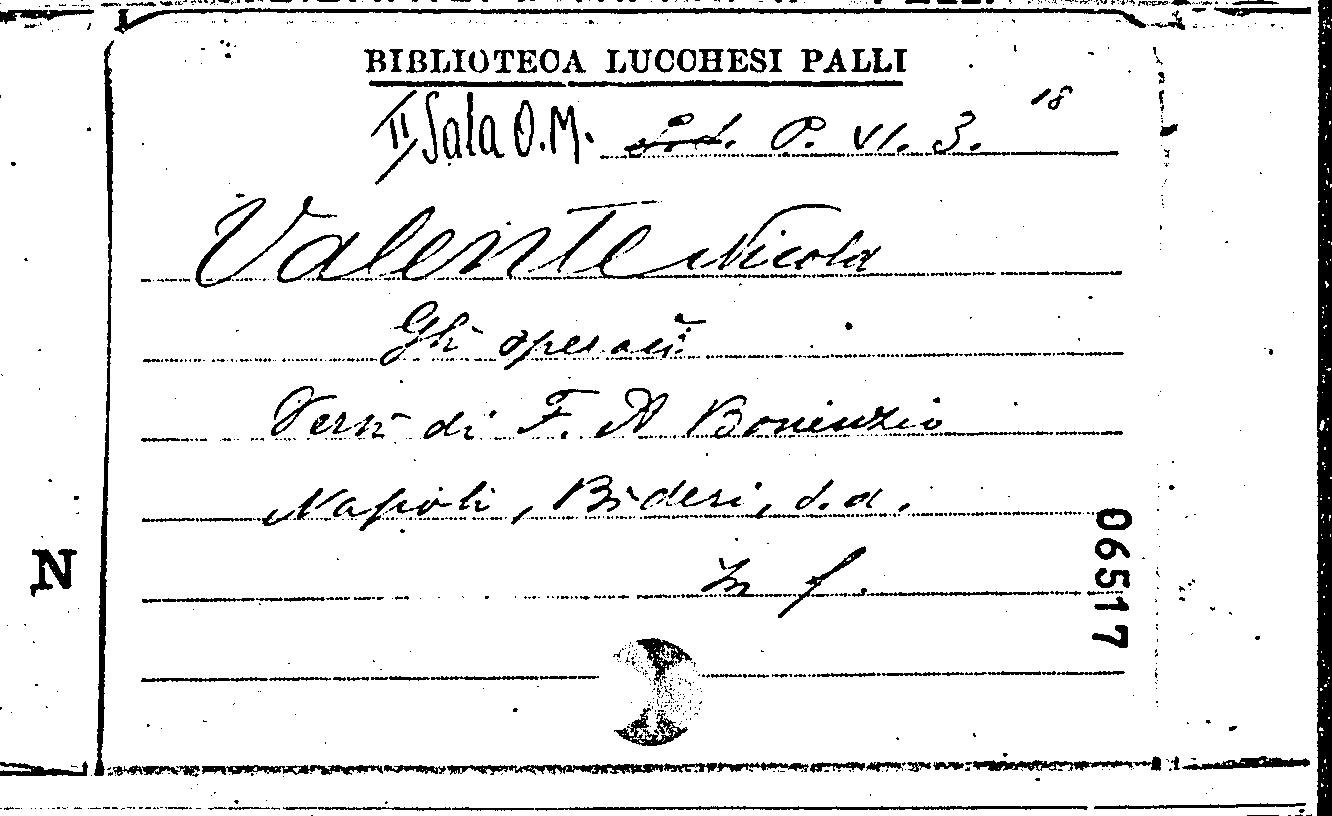 BIBLIOTECA LUCCHESI PALLI
II Sala O.M. P. VI. 3. 18
Valente Nicola
Gli operai
Versi di F. A Bonenzio
Napoli, Bideri, s.d.
In f.
N
06517